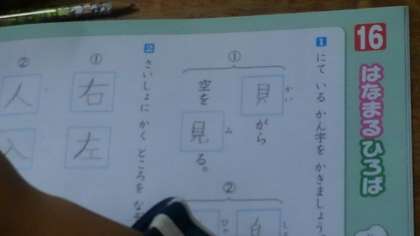 16 はなまるひろば
1 にて いる かん字を かきましょう。
①
貝が
かい
空を
見る。
み
②
2 さいしょに かく ところを な
①
右
左
②
人
入